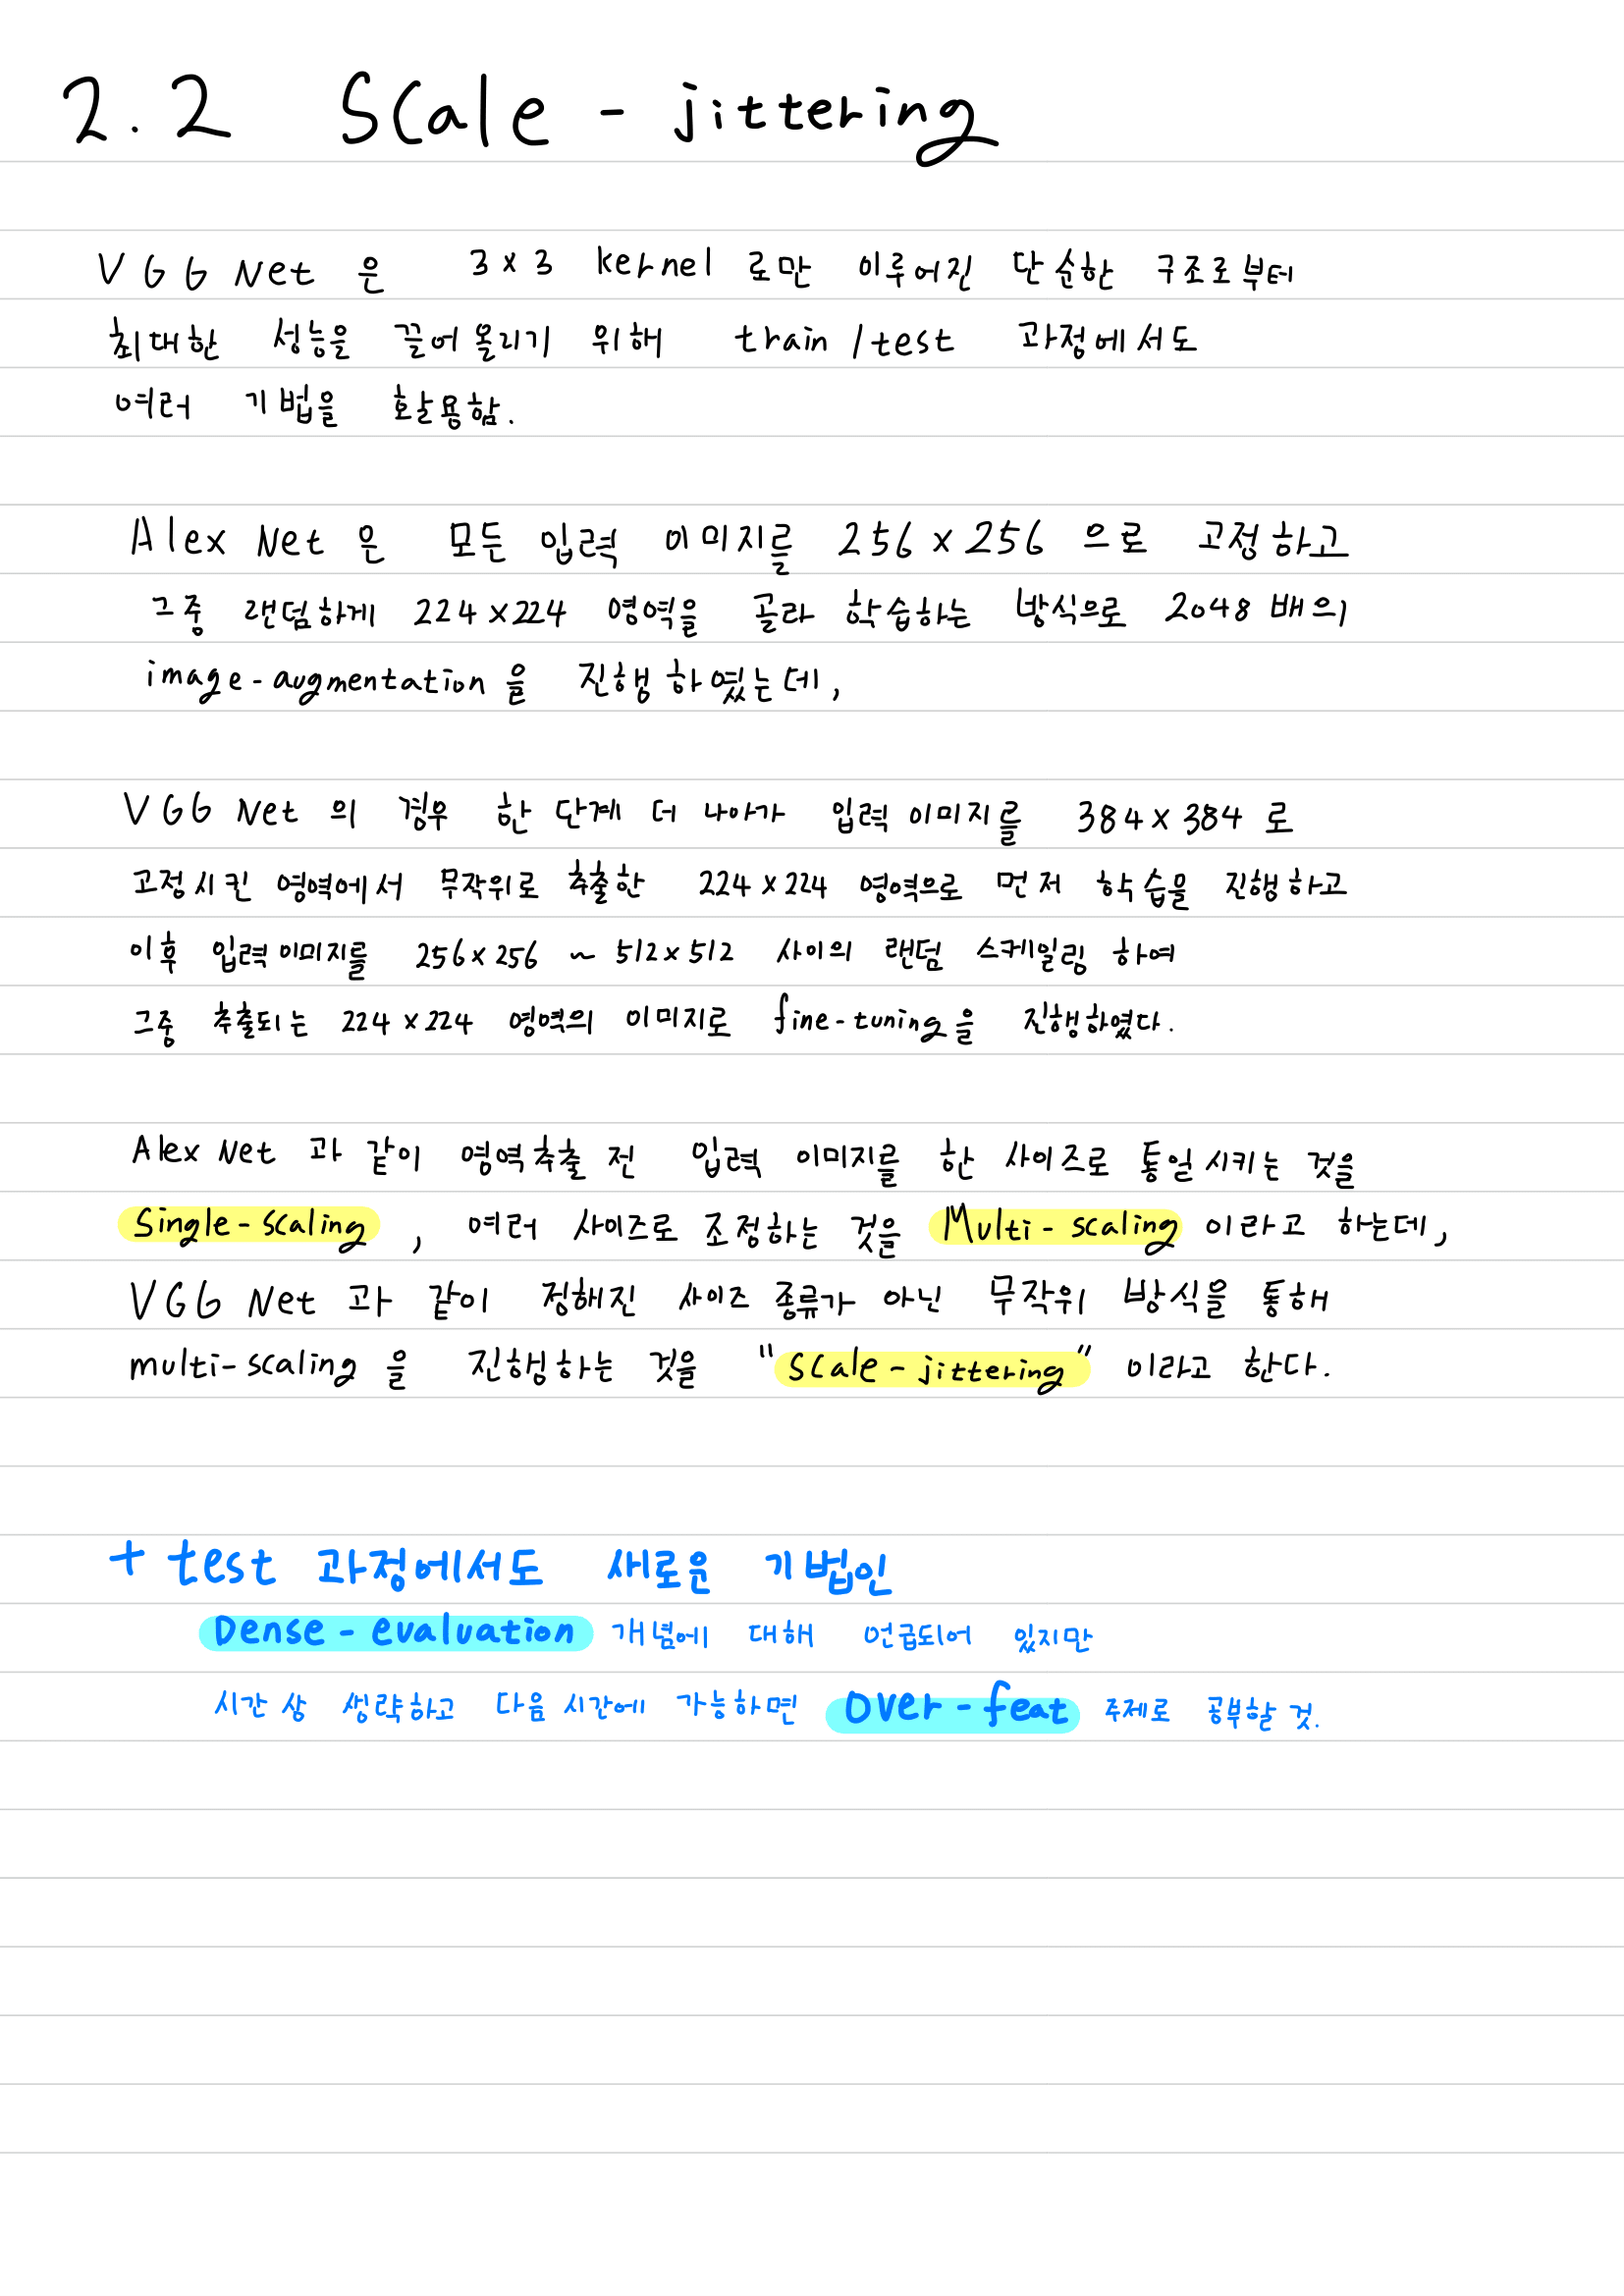 2.2 Scale-jittering
VGG Net은 3x3 kernel로만 이루어진 단순한 구조로부터
최대한 성능을 끌어올리기 위해 train/test 과정에서도
여러 기법을 활용함.
Alex Net은 모든 입력 이미지를 256x256 으로 고정하고
그중 랜덤하게 224x224 영역을 골라 학습하는 방식으로 2048배의
image-augmentation을 진행하였는데,
VGG Net의 경우 한 단계 더 나아가 입력 이미지를 384x384로
고정시킨 영역에서 무작위로 추출한 224x224 영역으로 먼저 학습을 진행하고
이후 입력이미지를 256x256 ~ 512x512 사이의 랜덤 스케일링 하여
그중 추출되는 224x224 영역의 이미지로 fine-tuning을 진행하였다.
Alex Net과 같이 영역추출 전 입력 이미지를 한 사이즈로 통일시키는 것을
Single-scaling, 여러 사이즈로 조정하는 것을 Multi-scaling이라고 하는데,
VGG Net과 같이 정해진 사이즈 종류가 아닌 무작위 방식을 통해
multi-scaling을 진행하는 것을 "Scale-jittering" 이라고 한다.
+ test 과정에서도 새로운 기법인
Dense-evaluation 개념에 대해 언급되어 있지만
시간 상 생략하고 다음 시간에 가능하면 over-feat 주제로 공부할 것.